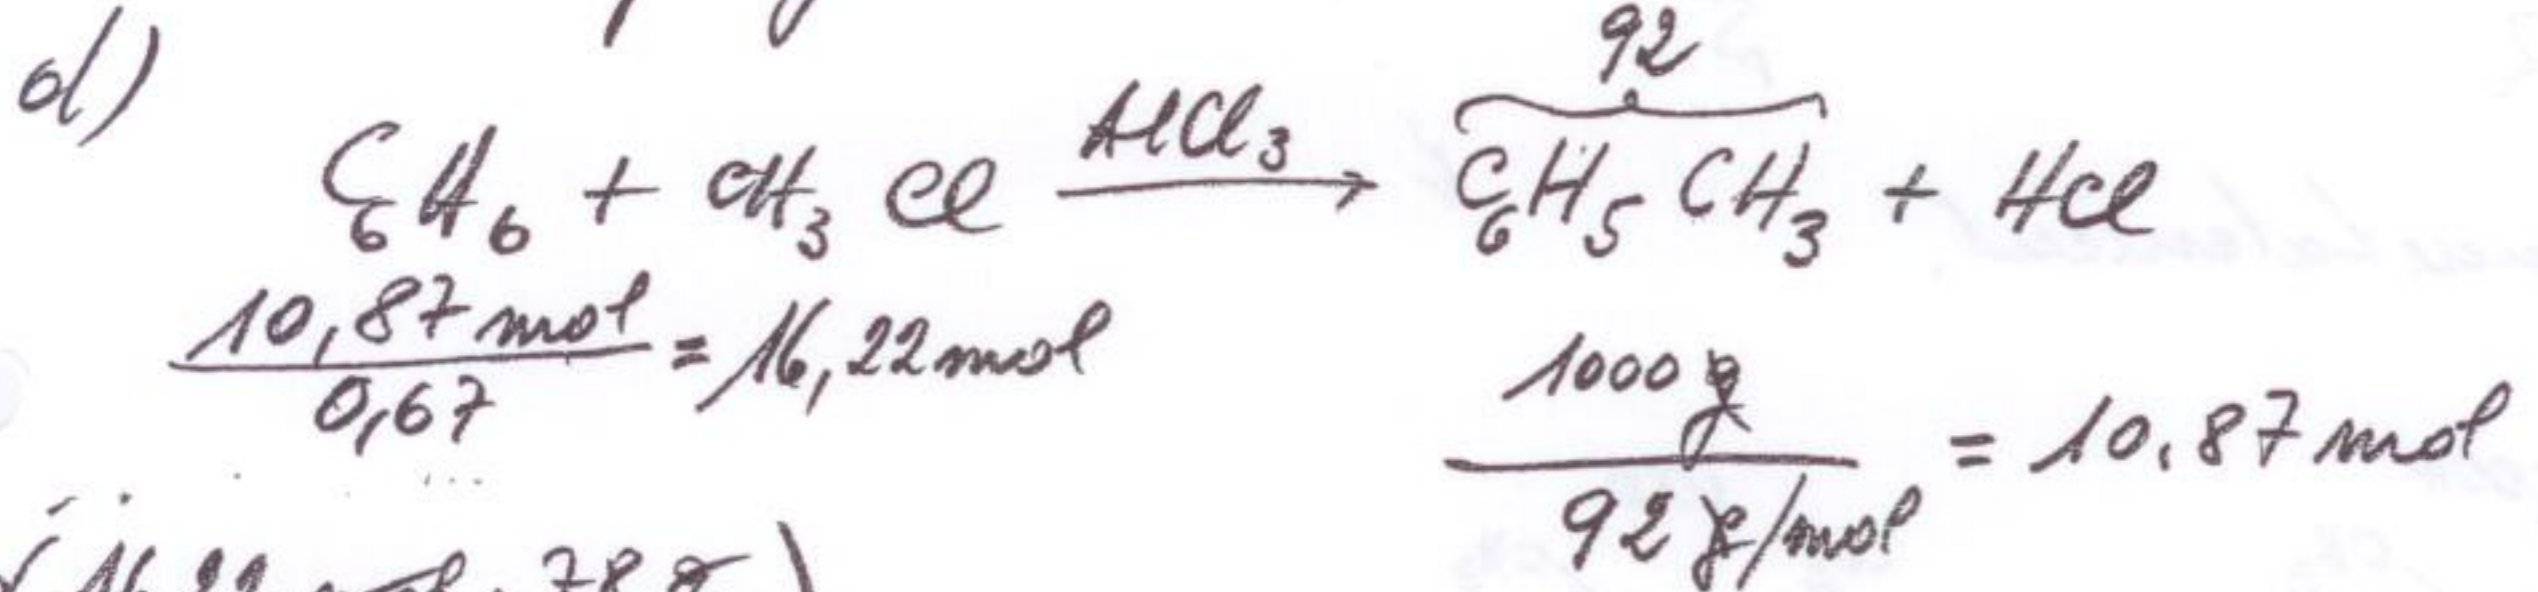 d)
92
C6H6 + CH3Cl AlCl3 → C6H5CH3 + HCl
10,87 mol / 0,67 = 16,22 mol
1000 g / 92 g/mol = 10,87 mol
16,22 mol · 78 g